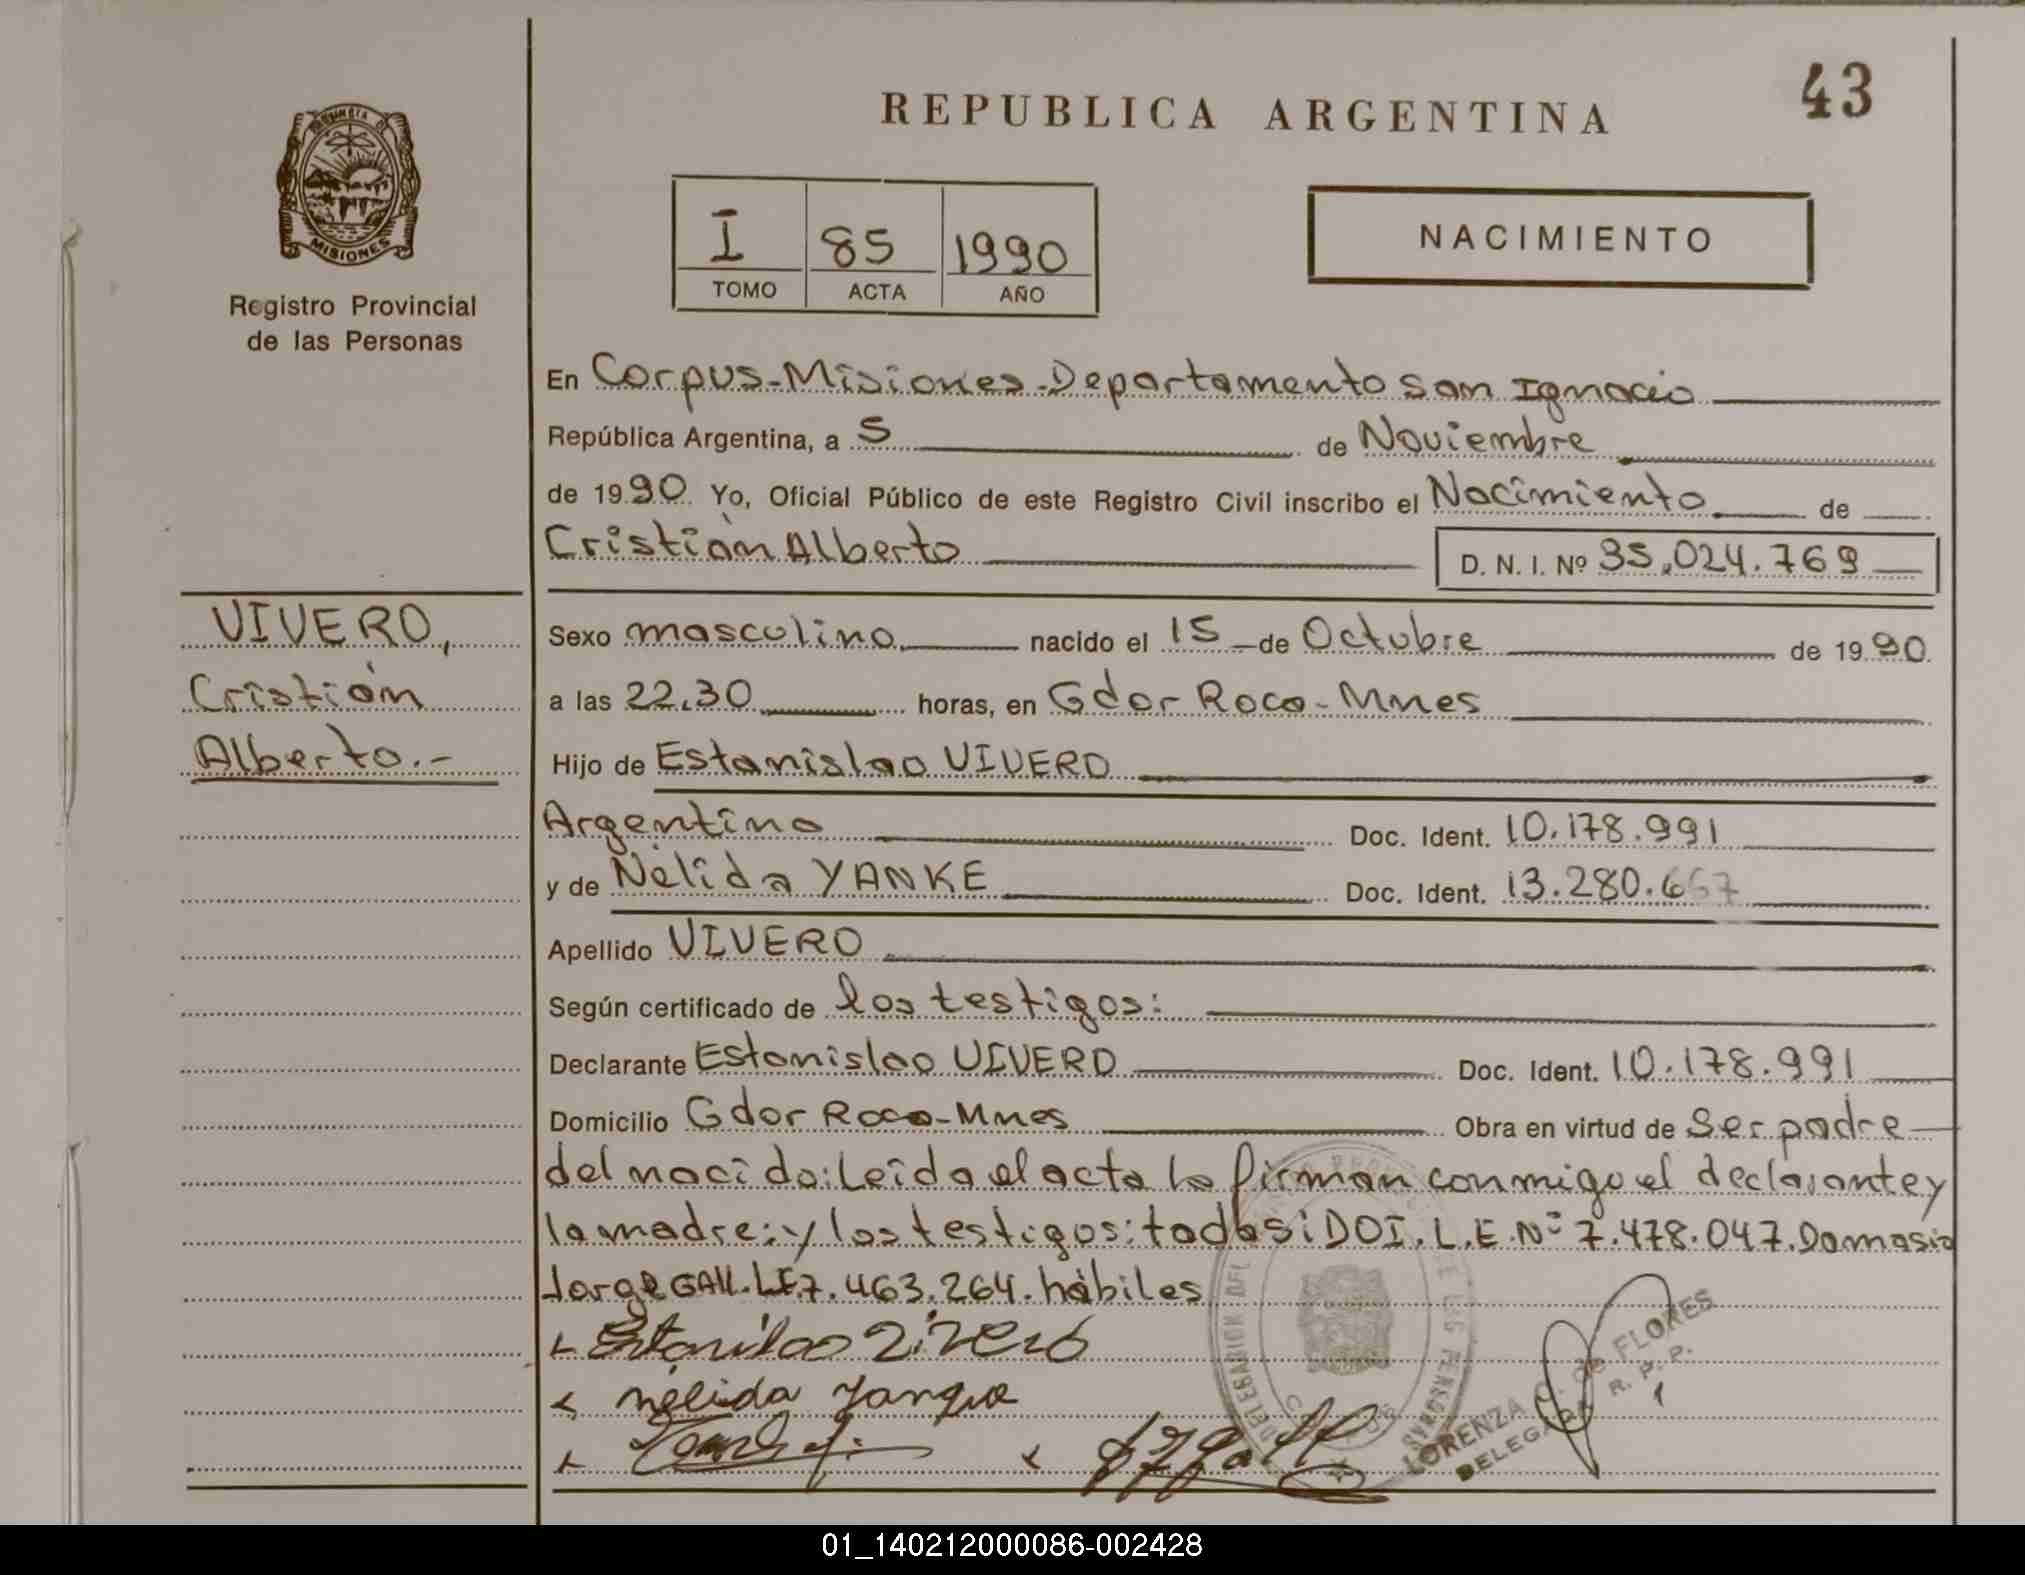 43
REPUBLICA ARGENTINA
PROVINCIA DE
MISIONES
Registro Provincial
de las Personas
I 85 1990
TOMO ACTA AÑO
NACIMIENTO
En Corpus-Misiones-Departamento San Ignacio
República Argentina, a 5 de Noviembre
de 1990 Yo, Oficial Público de este Registro Civil inscribo el Nacimiento de
Cristián Alberto D. N. I. Nº 35.024.769
VIVERO,
Cristián
Alberto.-
Sexo masculino nacido el 15 de Octubre de 1990
a las 22.30 horas, en Gdor Roca-Mnes
Hijo de Estanislao VIVERO
Argentino Doc. Ident. 10.178.991
y de Nélida YANKE Doc. Ident. 13.280.667
Apellido VIVERO
Según certificado de los testigos:
Declarante Estanislao VIVERO Doc. Ident. 10.178.991
Domicilio Gdor Roca-Mnes Obra en virtud de Ser padre
del nacido: Leída el acta la firman conmigo el declarante y
la madre: y los testigos: todos: DOI. L.E. Nº 7.478.047. Damasio
Jorge GALL. LE 7.463.264. hábiles
Estanislao Vivero
Nélida Yanque
DELEGACION DEL REGISTRO PROVINCIAL DE LAS PERSONAS
CORPUS
LORENZA C. de FLORES
DELEGADA R. P. P.
01_140212000086-002428